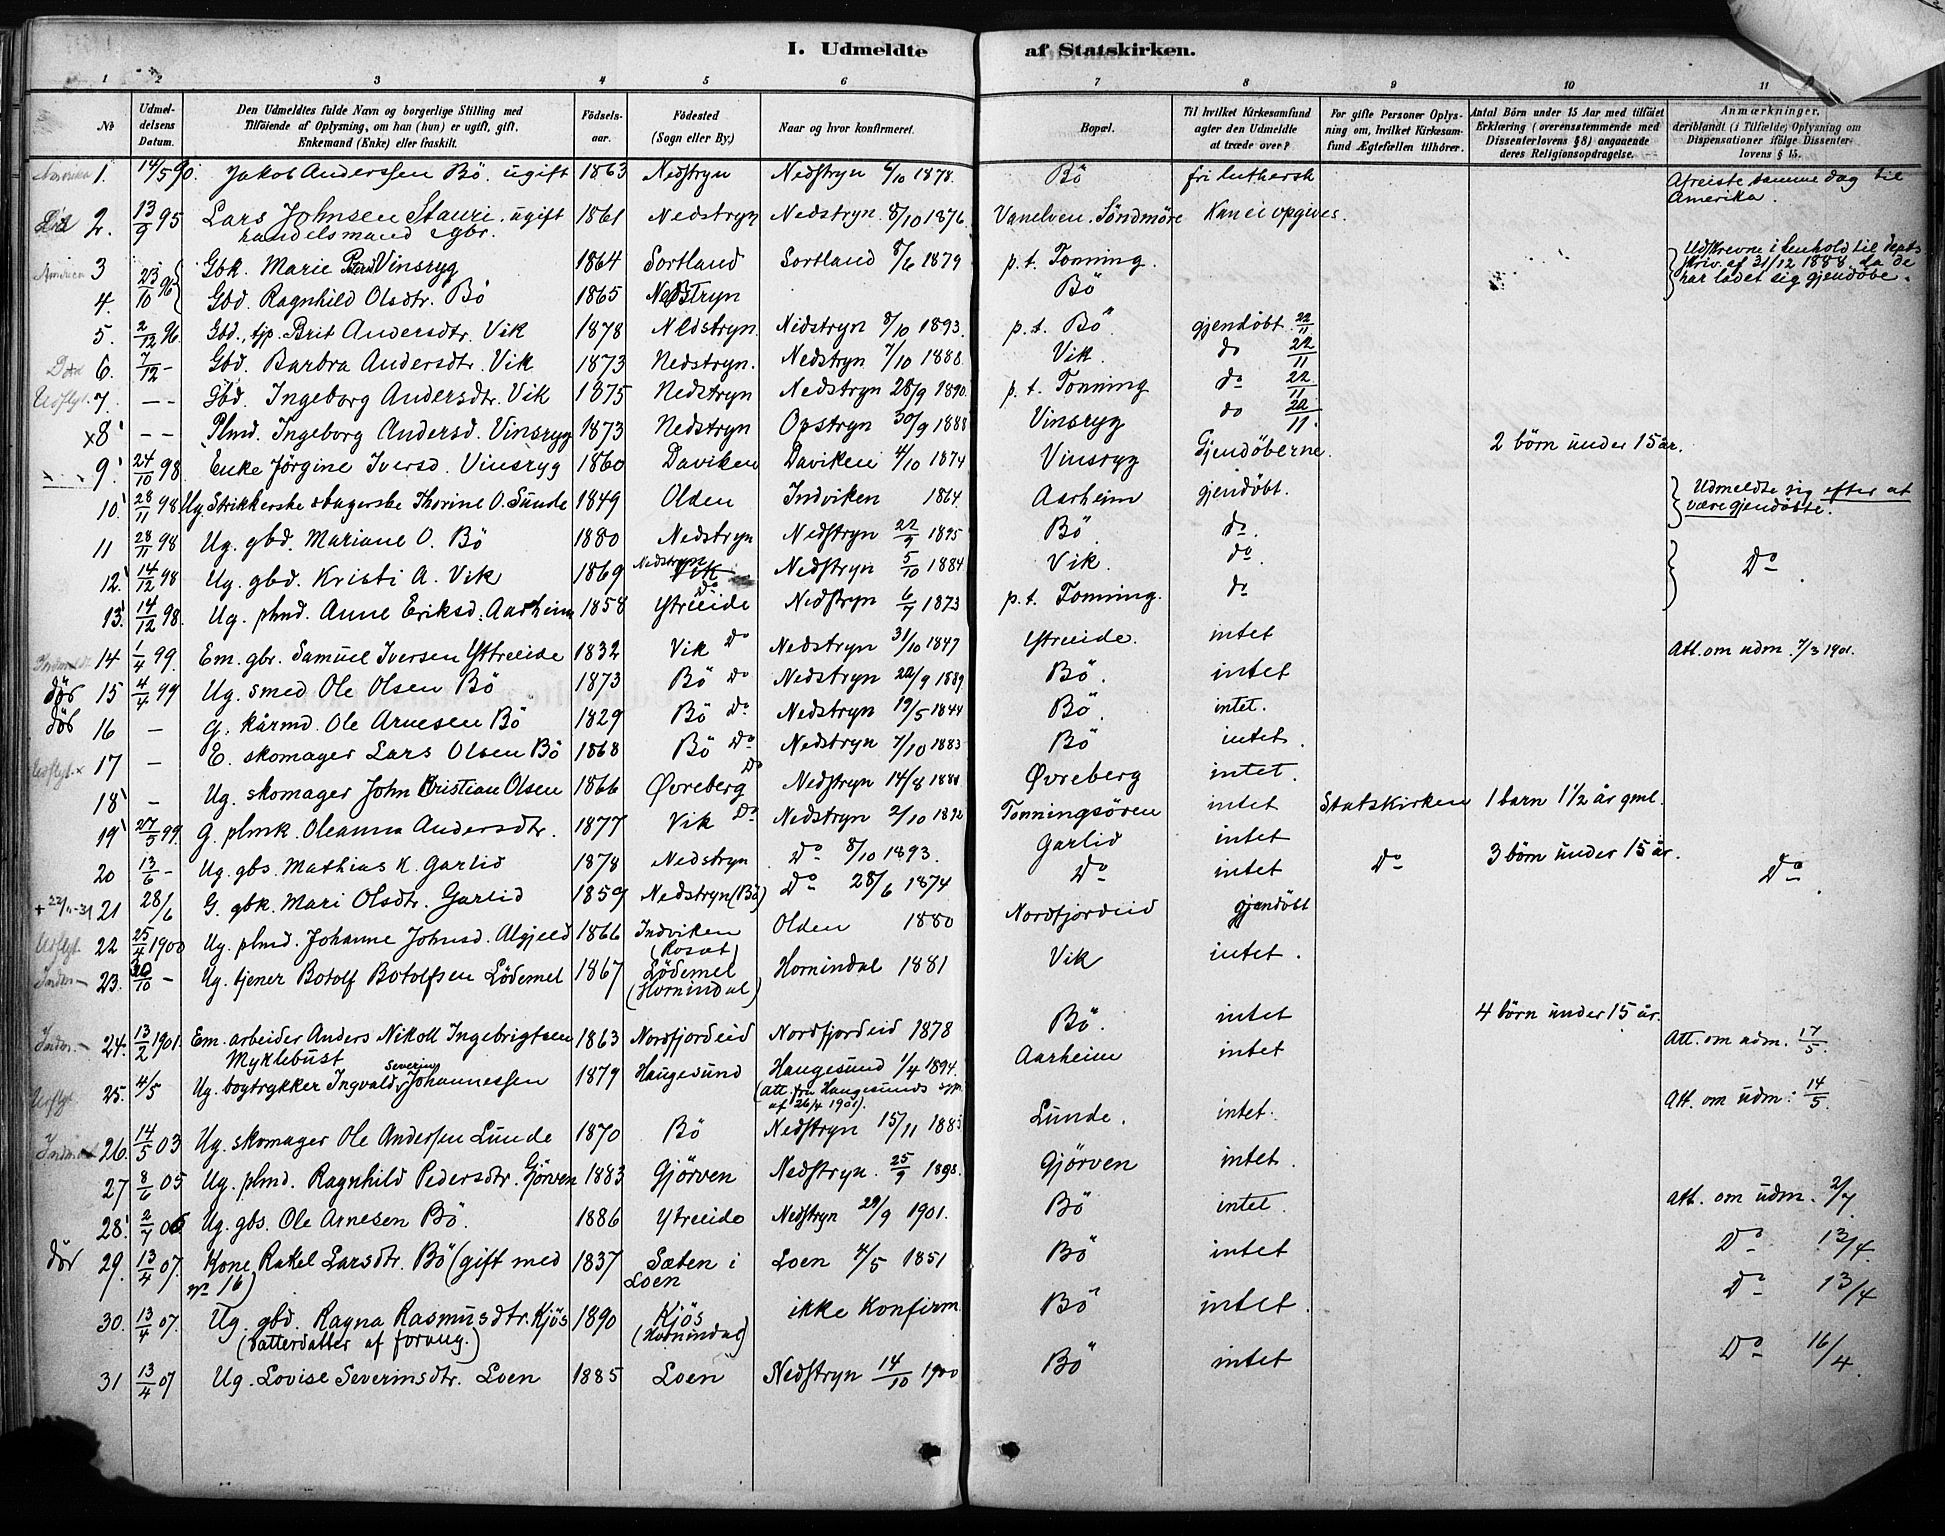 I. Udmeldte af Statskirken.
1 2 3 4 5 6 7 8 9 10 11
№ Udmeldelsens Datum. Den Udmeldtes fulde Navn og borgerlige Stilling med Tilføiende af Oplysning, om han (hun) er ugift, gift, Enkemand (Enke) eller fraskilt. Fødselsaar. Fødested (Sogn eller By.) Naar og hvor konfirmeret. Bopæl. Til hvilket Kirkesamfund agter den Udmeldte at træde over? For gifte Personer Oplysning om, hvilket Kirkesamfund Ægtefællen tilhører. Antal Børn under 15 Aar med tilføiet Erklæring (overensstemmende med Dissenterlovens § 8) angaaende deres Religionsopdragelse. Anmærkninger, deriblandt (i Tilfælde) Oplysning om Dispensationer ifølge Dissenterlovens § 15.
Amerika 1. 14/5 90. Jakob Anderssen Bö. ugift 1863 Nedstryn Nedstryn 6/10 1878. Bö fri luthersk Afreiste samme dag til Amerika.
Död 2. 13/9 95 Lars Johnsen Stauri. ugift handelsmand & gbr. 1861 Nedstryn Nedstryn 8/10 1876. Vanelven. Söndmöre Kan ei opgives.
America 3 23/10 96 Gbk. Marie Vinsryg 1864 Sortland Sortland 8/6 1879 p. t. Tonning. Udskrevne i henhold til depts skriv. af 31/12 1888 da de har ladet sig gjendöbe.
4. Gbd. Ragnhild Olsdtr. Bö 1865 Nedstryn Bö
5. 2/12 96. Gbd., tjp. Brit Andersdtr. Vik 1878 Nedstryn. Nedstryn 8/10 1893. p. t. Bö gjendöbt 22/11
Död 6. 7/12 - Gbd. Barbra Andersdtr. Vik 1873 Nedstryn. Nedstryn 7/10 1888. Vik. do 22/11
Udflyt. 7. - - Gbd. Ingeborg Andersdtr. Vik 1875 Nedstryn Nedstryn 28/9 1890. p. t. Tonning do 22/11
x8 - - Plmd. Ingeborg Andersd. Vinsryg 1873 Nedstryn Opstryn 30/9 1888 Vinsryg do 22/11
9. 24/10 98. Enke Jörgine Iversd. Vinsryg 1860 Daviken Daviken 4/10 1874 Vinsryg Gjendöberne. 2 börn under 15 år.
10 28/11 98 Ug. Strikkerske & bagerske Thorine O. Sunde 1849 Olden Indviken 1864. Aarheim gjendöbt. Udmeldte sig efter at være gjendöbte.
11 28/11 98 Ug. gbd. Mariane O. Bö 1880 Nedstryn Nedstryn 22/9 1895 Bö do.
12. 14/12 98 Ug. gbd. Kristi A. Vik 1869 Nedstryn Vik Nedstryn 5/10 1884 Vik. do Do
13. 14/12 98. Ug. plmd. Anne Eriksd. Aarheim 1858 Ytreeide do Nedstryn 6/7 1873 p. t. Tonning. do
14 1/4 99. Em. gbr. Samuel Iversen Ytreeide 1832 Vik Do Nedstryn 31/10 1847 Ytreeide. intet Att. om udm. 7/3 1901.
död 15 4/4 99 Ug. smed Ole Olsen Bö 1873 Bö Do Nedstryn 22/9 1889 Bö. intet
död 16 - G. kårmd. Ole Arnesen Bö 1829 Bö Do Nedstryn 19/5 1844 Bö. intet.
Udflyt. x 17 - E. skomager Lars Olsen Bö 1868 Bö Do Nedstryn 7/10 1883 Bö intet.
18 - Ug. skomager John Kristian Olsen 1866 Øvreberg Do Nedstryn 14/8 1881 Øvreberg intet.
19 27/5 99. G. plmk. Oleanna Andersdtr. 1877 Vik Do Nedstryn 2/10 1892 Tonningsören intet Statskirken 1 barn 1½ år gml.
20 13/6 - Ug. gbs. Mathias K. Garlid 1878 Nedstryn Do 8/10 1893. Garlid intet
21 28/6 G. gbk. Mari Olsdtr. Garlid 1859 Nedstryn (Bö) Do 28/6 1874 Do intet Do 3 börn under 15 år. Do
Udflyt. 22 25/4 1900 Ug. plmd. Johanne Johnsd. Algjeld 1866 Indviken (Rosat) Olden 1880 Nordfjordeid gjendöbt
23. 30/10 - Ug. tjener Botolf Botolfsen Lödemel 1867 Lödemel (Hornindal) Hornindal 1881 Vik intet.
24. 13/2 1901. Em. arbeider Anders Nikoll Ingebrigtsen Myklebust 1863 Nordfjordeid Nordfjordeid 1878 Bö. intet 4 börn under 15 år.
Udflyt. 25. 4/5 Ug. bogtrykker Ingvald Severin Johannessen 1879 Haugesund Haugesund 1/4 1894. (Att. fra Haugesunds af 26/4 1901). Aarheim intet Att. om udm. 17/5.
26. 14/5 03 Ug. skomager Ole Andersen Lunde 1870 Bö Nedstryn 15/11 1885 Lunde. intet. Att. om udm: 14/5.
27 8/6 05 Ug. plmd. Ragnhild Pedersdtr. Gjörven 1883 Gjörven Nedstryn. 25/9 1898. Gjörven intet.
28. 2/7 06 Ug. gbs. Ole Arnesen Bö. 1886 Ytreeide Nedstryn 29/9 1901. Bö intet. Att. om udm. 2/7.
död 29. 13/4 07. Kone Rakel Larsdtr. Bö (gift med no 16) 1837 Sæten i Loen Loen 4/5 1851 Bö intet Do 13/4.
30. 13/4 07. Ug. gbd. Ragna Rasmusdtr. Kjös (Datterdatter af forrig.) 1890 Kjös (Hornindal) ikke Konfirm. Bö intet. Do 13/4
31 13/4 07 Ug. Lovise Severinsdtr. Loen 1885 Loen Nedstryn 14/10 1900 Bö intet Do 16/4.